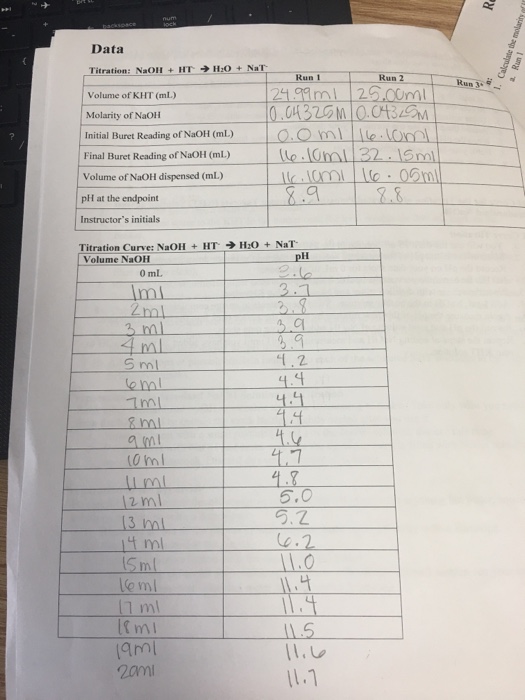 backspace
num
lock
Data
Titration: NaOH + HT⁻ → H₂O + NaT⁻
Run 1 Run 2 Run 3
Volume of KHT (mL) 24.99ml 25.00ml
Molarity of NaOH 0.04325M 0.04325M
Initial Buret Reading of NaOH (mL) 0.0ml 16.10ml
Final Buret Reading of NaOH (mL) 16.10ml 32.15ml
Volume of NaOH dispensed (mL) 16.10ml 16.05ml
pH at the endpoint 8.9 8.8
Instructor's initials
Titration Curve: NaOH + HT⁻ → H₂O + NaT⁻
Volume NaOH pH
0 mL 3.6
1ml 3.7
2ml 3.8
3 ml 3.9
4 ml 3.9
5 ml 4.2
6ml 4.4
7ml 4.4
8ml 4.4
9ml 4.6
10ml 4.7
11ml 4.8
12ml 5.0
13 ml 5.2
14 ml 6.2
15ml 11.0
16ml 11.4
17 ml 11.4
18ml 11.5
19ml 11.6
20ml 11.7
1. Calculate the molarity of
a. Run 1